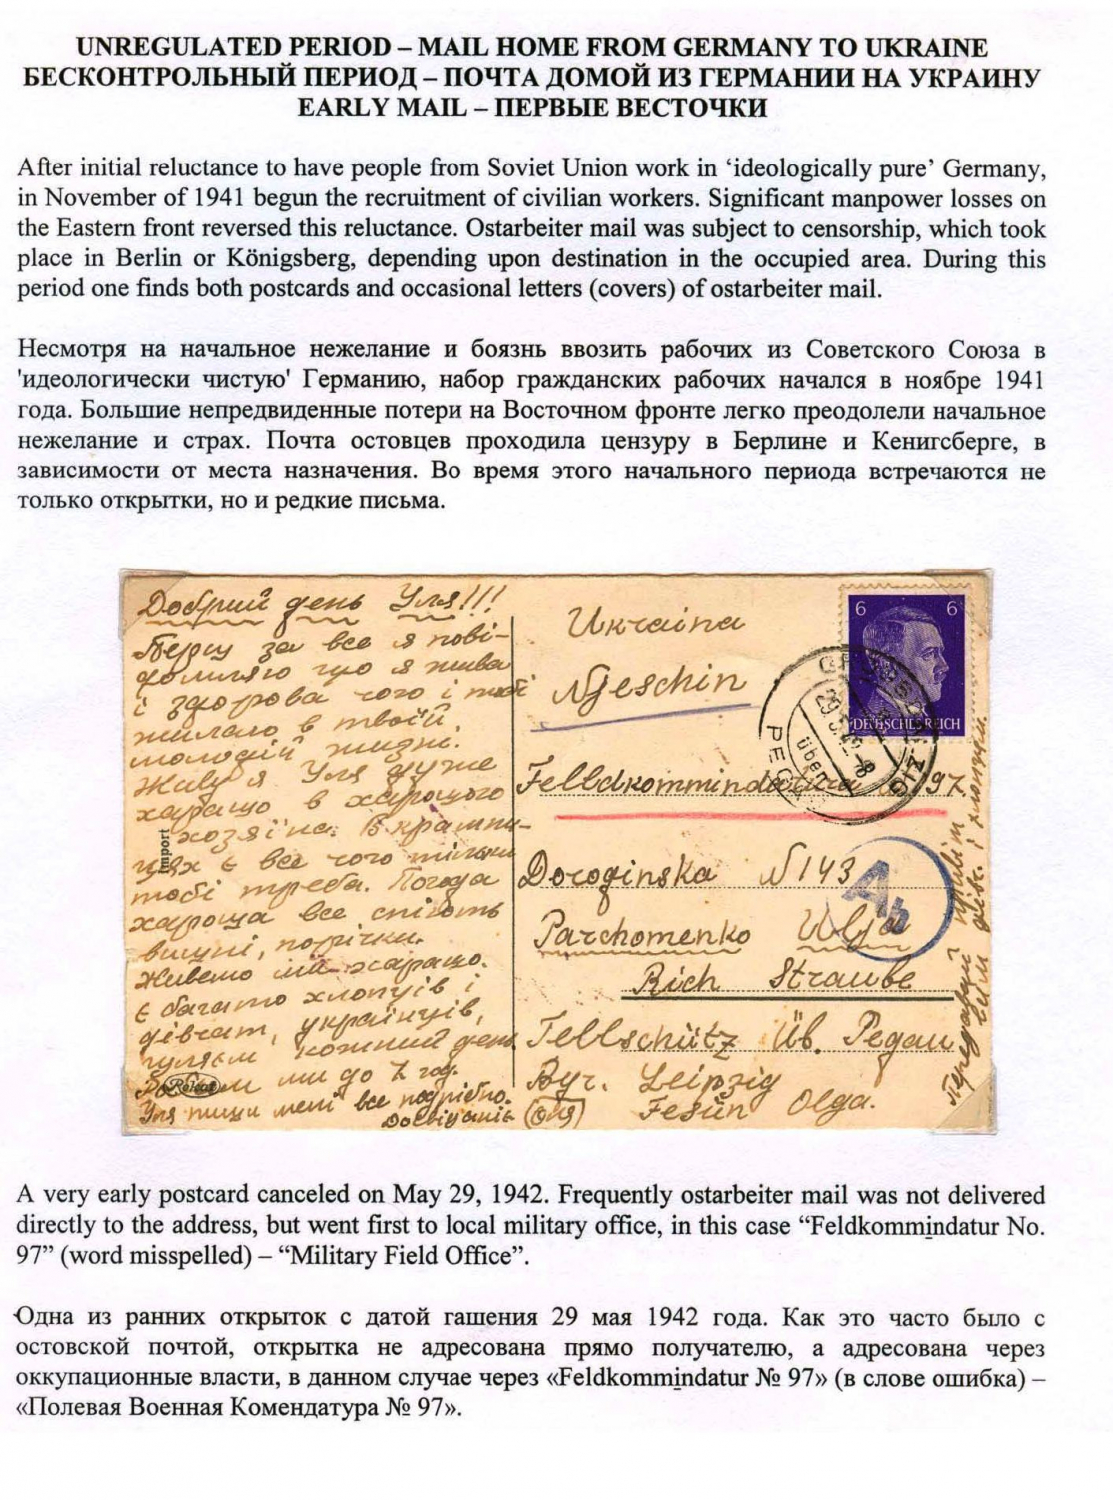 UNREGULATED PERIOD – MAIL HOME FROM GERMANY TO UKRAINE
БЕСКОНТРОЛЬНЫЙ ПЕРИОД – ПОЧТА ДОМОЙ ИЗ ГЕРМАНИИ НА УКРАИНУ
EARLY MAIL – ПЕРВЫЕ ВЕСТОЧКИ
After initial reluctance to have people from Soviet Union work in ‘ideologically pure’ Germany,
in November of 1941 begun the recruitment of civilian workers. Significant manpower losses on
the Eastern front reversed this reluctance. Ostarbeiter mail was subject to censorship, which took
place in Berlin or Königsberg, depending upon destination in the occupied area. During this
period one finds both postcards and occasional letters (covers) of ostarbeiter mail.
Несмотря на начальное нежелание и боязнь ввозить рабочих из Советского Союза в
'идеологически чистую' Германию, набор гражданских рабочих начался в ноябре 1941
года. Большие непредвиденные потери на Восточном фронте легко преодолели начальное
нежелание и страх. Почта остовцев проходила цензуру в Берлине и Кенигсберге, в
зависимости от места назначения. Во время этого начального периода встречаются не
только открытки, но и редкие письма.
Добрий день Уля!!!
Перш за все я пові-
домляю що я жива
і здорова чого і тобі
желаю в твоєй
молодій жизні.
Живу я Уля дуже
харашо в харошого
хозяїна. В крамни-
цях є все чого тільки
тобі треба. Погода
хароша все спіють
вишні, порічки.
Живемо ми харашо.
Є багато хлопців і
дівчат, українців,
гуляєм кожний день
ми до 7 год.
Уля пиши мені все подрібно.
Досвіданіє (Оля)
Import
Rokat
Ukraina
Njeschin
Felldkommindatura 97.
Doroginska N 143
Parchomenko Ulja
Rich Straube
Tellschütz Üb. Pegau
Leipzig
Fesün Olga.
6 6
DEUTSCHES REICH
über
PEGAU
Ab
Передавай привіт
всім дівч. і хлопцям.
A very early postcard canceled on May 29, 1942. Frequently ostarbeiter mail was not delivered
directly to the address, but went first to local military office, in this case “Feldkommindatur No.
97” (word misspelled) – “Military Field Office”.
Одна из ранних открыток с датой гашения 29 мая 1942 года. Как это часто было с
остовской почтой, открытка не адресована прямо получателю, а адресована через
оккупационные власти, в данном случае через «Feldkommindatur № 97» (в слове ошибка) –
«Полевая Военная Комендатура № 97».